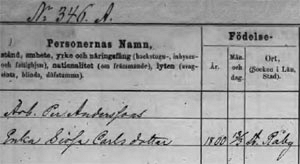 No 346. A.
Personernas Namn,
stånd, embete, yrke och näringsfång (backstugu-, inhyses-
och fattighjon), nationalitet (om främmande), lyten (svag-
sinta, blinda, döfstumma).
Födelse-
År.
Mån.
och
dag.
Ort.
(Socken i Län,
Stad).
Arb. Per Andersson
Enka Sofia Carlsdotter 1800 Råby